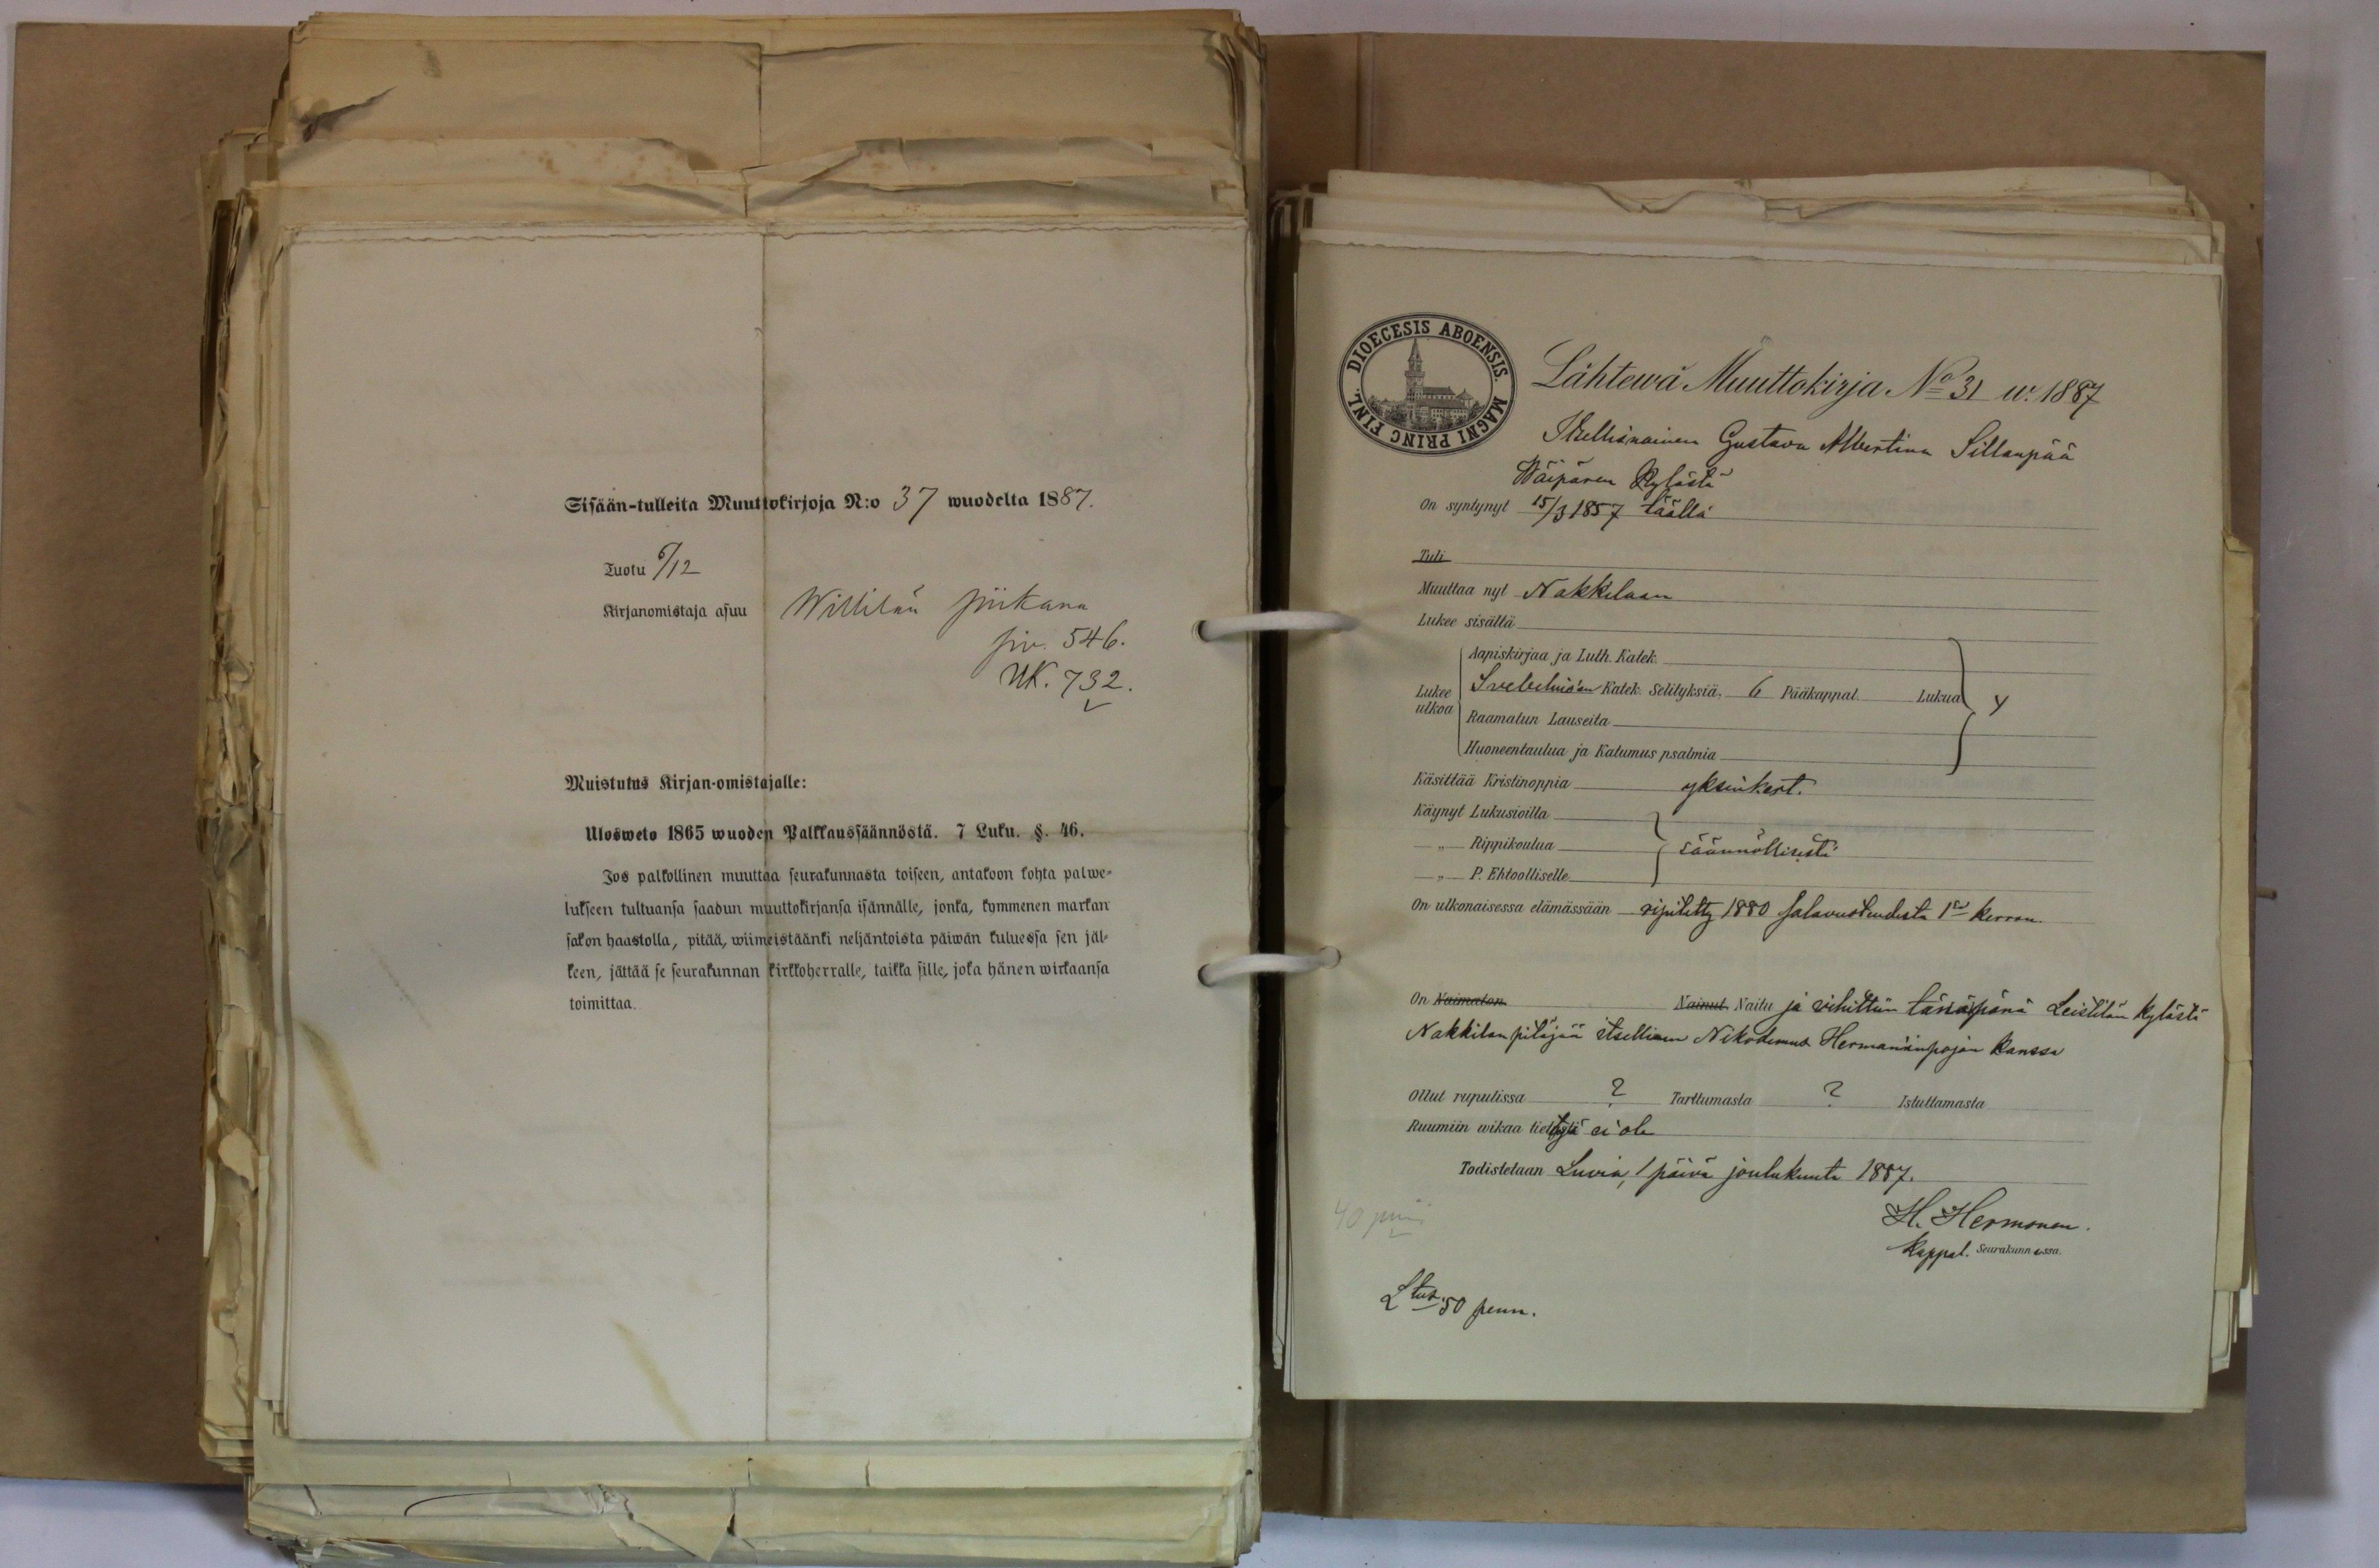 Sisään-tulleita Muuttokirjoja N:o 37 wuodelta 1887.
Tuotu 6/12
Kirjanomistaja asuu Willilän piikana
siv. 546.
UK. 732.
Muistutus Kirjan-omistajalle:
Ulosweto 1865 wuoden Palkkaussäännöstä. 7 Luku. §. 46.
Jos palkollinen muuttaa seurakunnasta toiseen, antakoon kohta palwe-
lukseen tultuansa saadun muuttokirjansa isännälle, jonka, kymmenen markan
sakon haastolla, pitää, wiimeistäänki neljäntoista päiwän kuluessa sen jäl-
keen, jättää se seurakunnan kirkkoherralle, taikka sille, joka hänen wirkaansa
toimittaa.
DIOECESIS ABOENSIS. MAGNI PRINC FINL.
Lähtewä Muuttokirja No 31 w. 1887
Itsellisnainen Gustava Albertina Sillanpää
Wäipären Kylästä
On syntynyt 15/3 1857 täällä
Tuli
Muuttaa nyt Nakkilaan
Lukee sisältä
Aapiskirjaa ja Luth. Katek.
Lukee ulkoa Svebelius'en Katek. Selityksiä. 6 Pääkappal. Lukua y
Raamatun Lauseita
Huoneentaulua ja Katumus psalmia
Käsittää Kristinoppia yksinkert.
Käynyt Lukusioilla
—„— Rippikoulua säännöllisesti
—„— P. Ehtoolliselle
On ulkonaisessa elämässään ripitetty 1880 salavuoteudesta 1sn kerran
On Naimaton Nainut Naitu ja vihittiin tänäpänä Leistilän kylästä
Nakkilan pitäjää itsellisen Nikodemus Hermaninpojan kanssa
Ollut rupulissa ? Tarttumasta ? Istuttamasta
Ruumiin wikaa tiettyä ei ole
Todistetaan Luvia, 1 päivä joulukuuta 1887.
H. Hermonen.
Kappal. Seurakunnassa.
40 pni
Ltus. 50 penn.